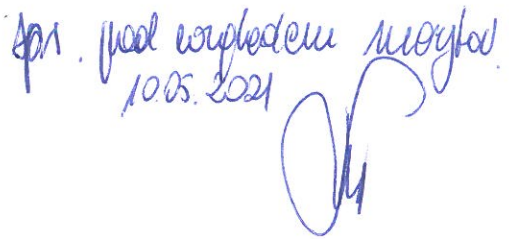 Spr. pod względem merytor.
10.05.2021